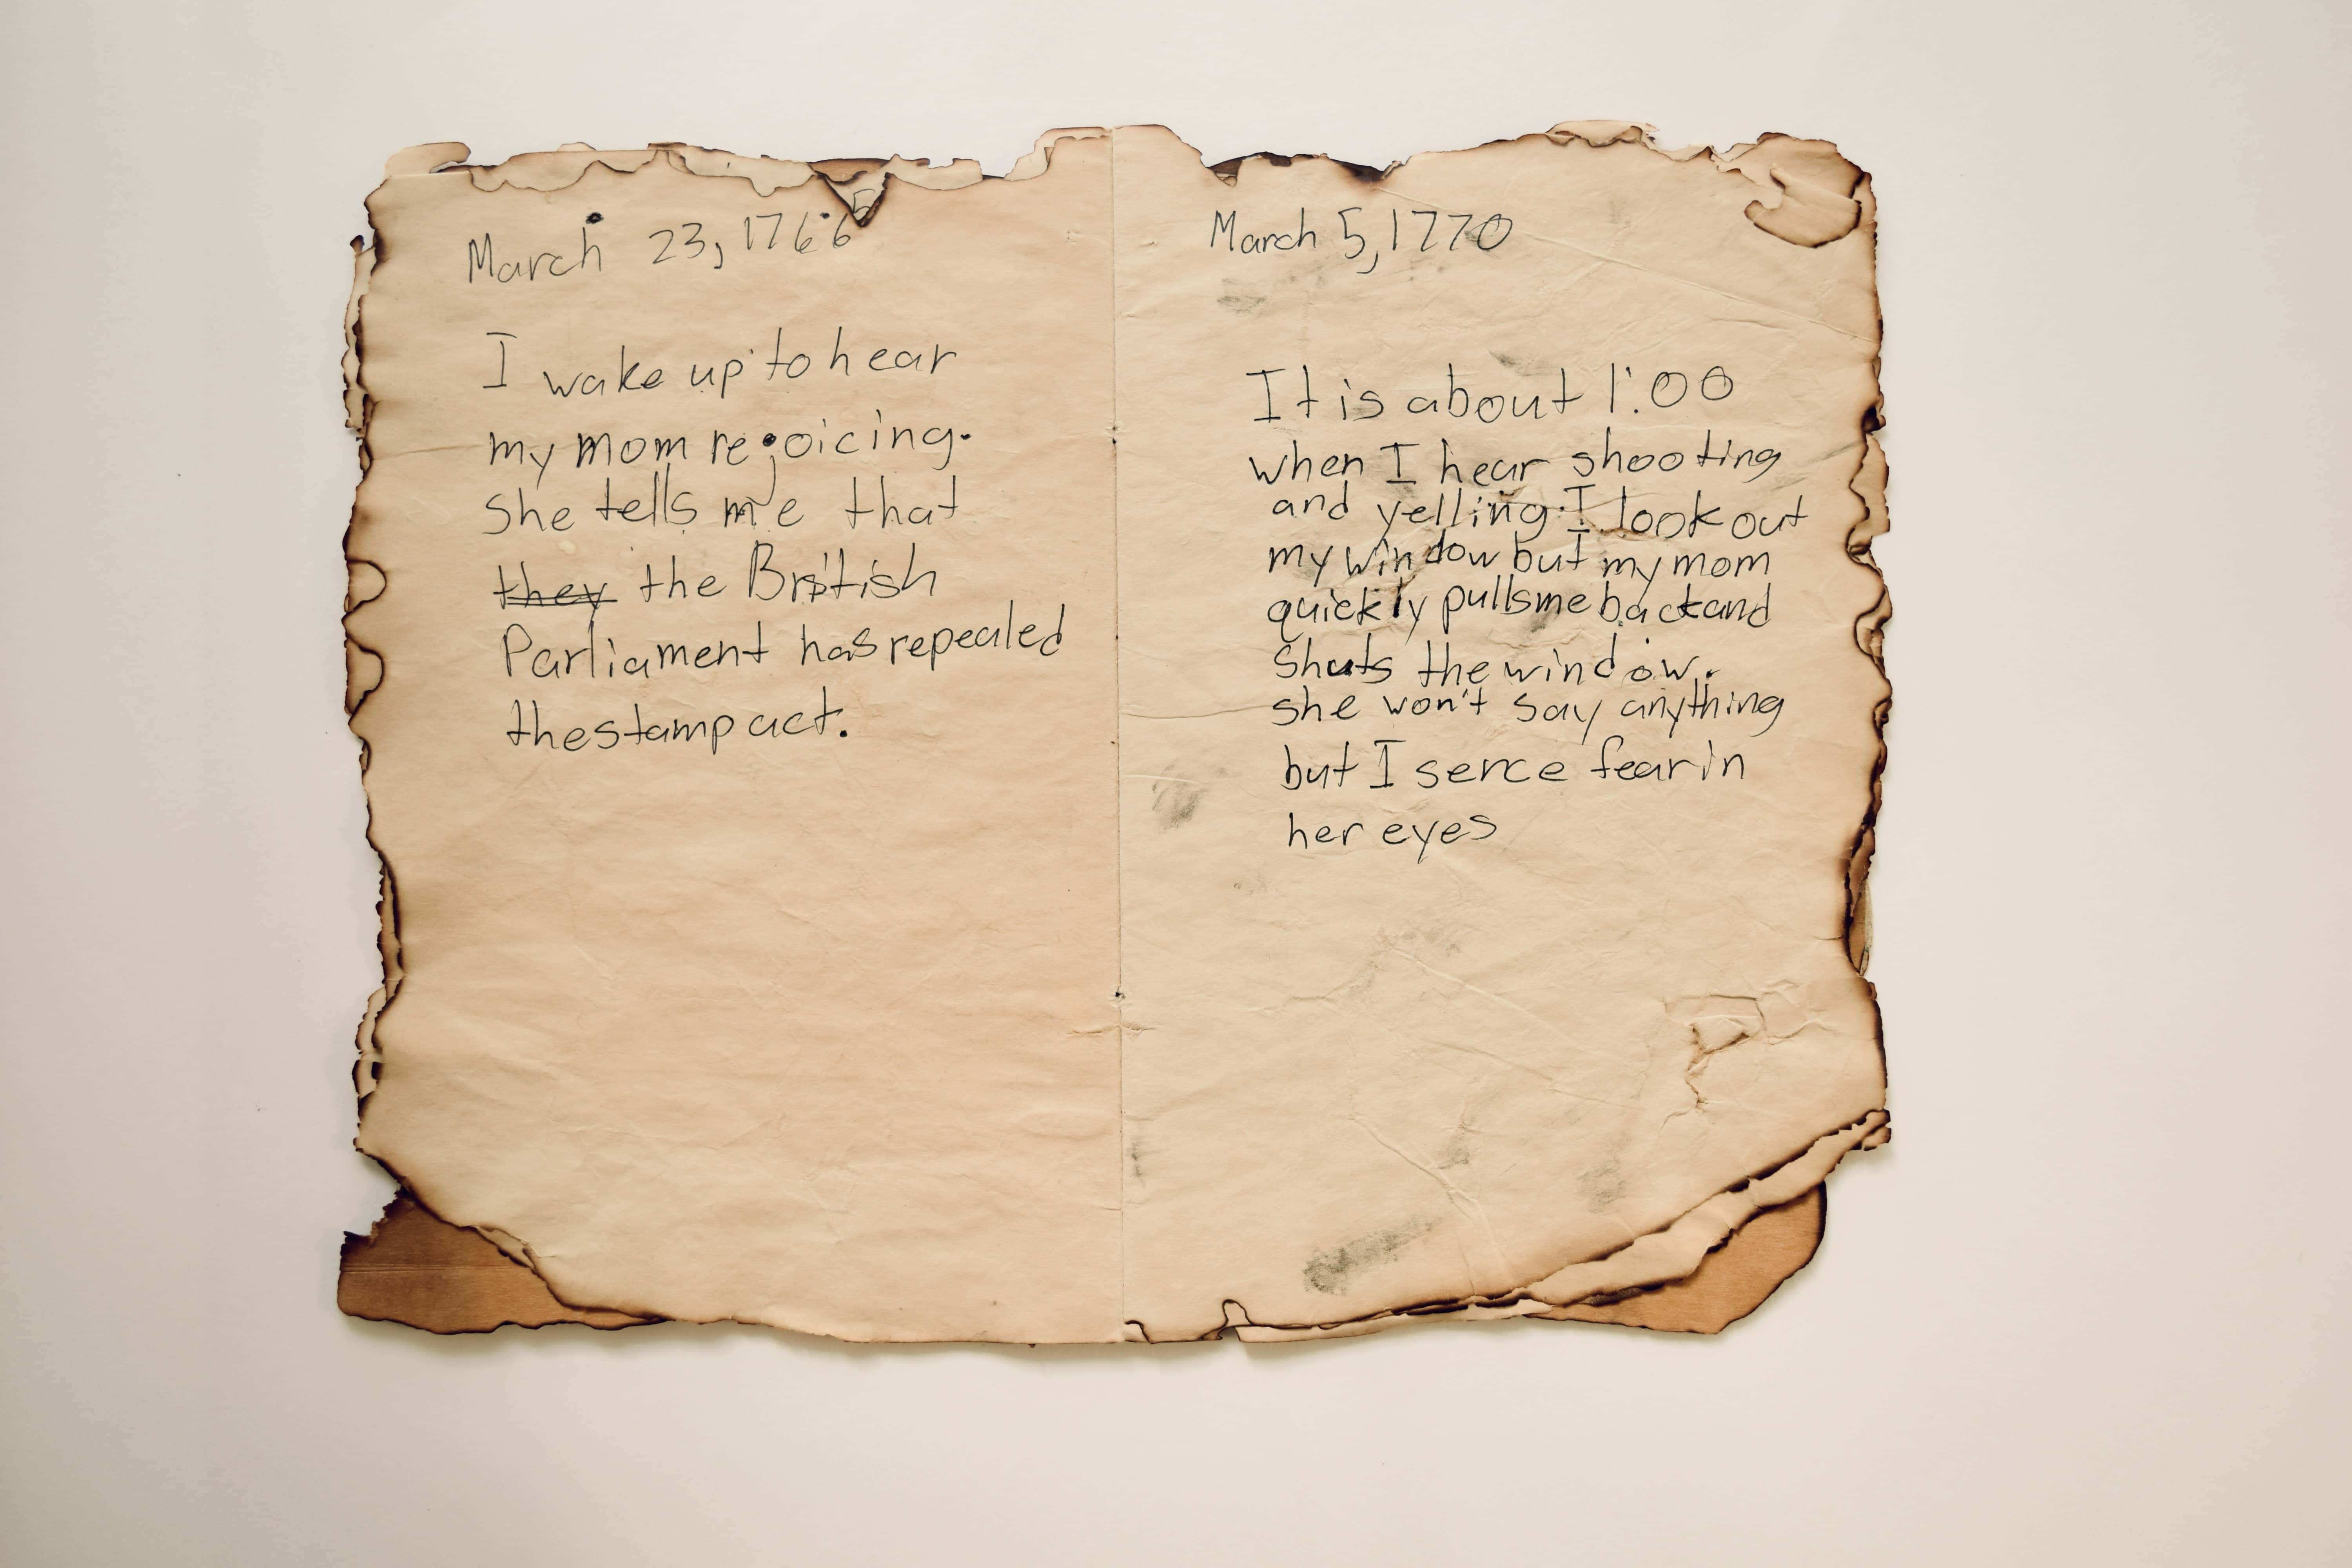 March 23, 1766
I wake up to hear
my mom rejoicing.
she tells me that
they the British
Parliament has repealed
the stamp act.
March 5, 1770
It is about 1:00
when I hear shooting
and yelling. I look out
my window but my mom
quickly pulls me back and
shuts the window.
she won't say anything
but I serce fear in
her eyes